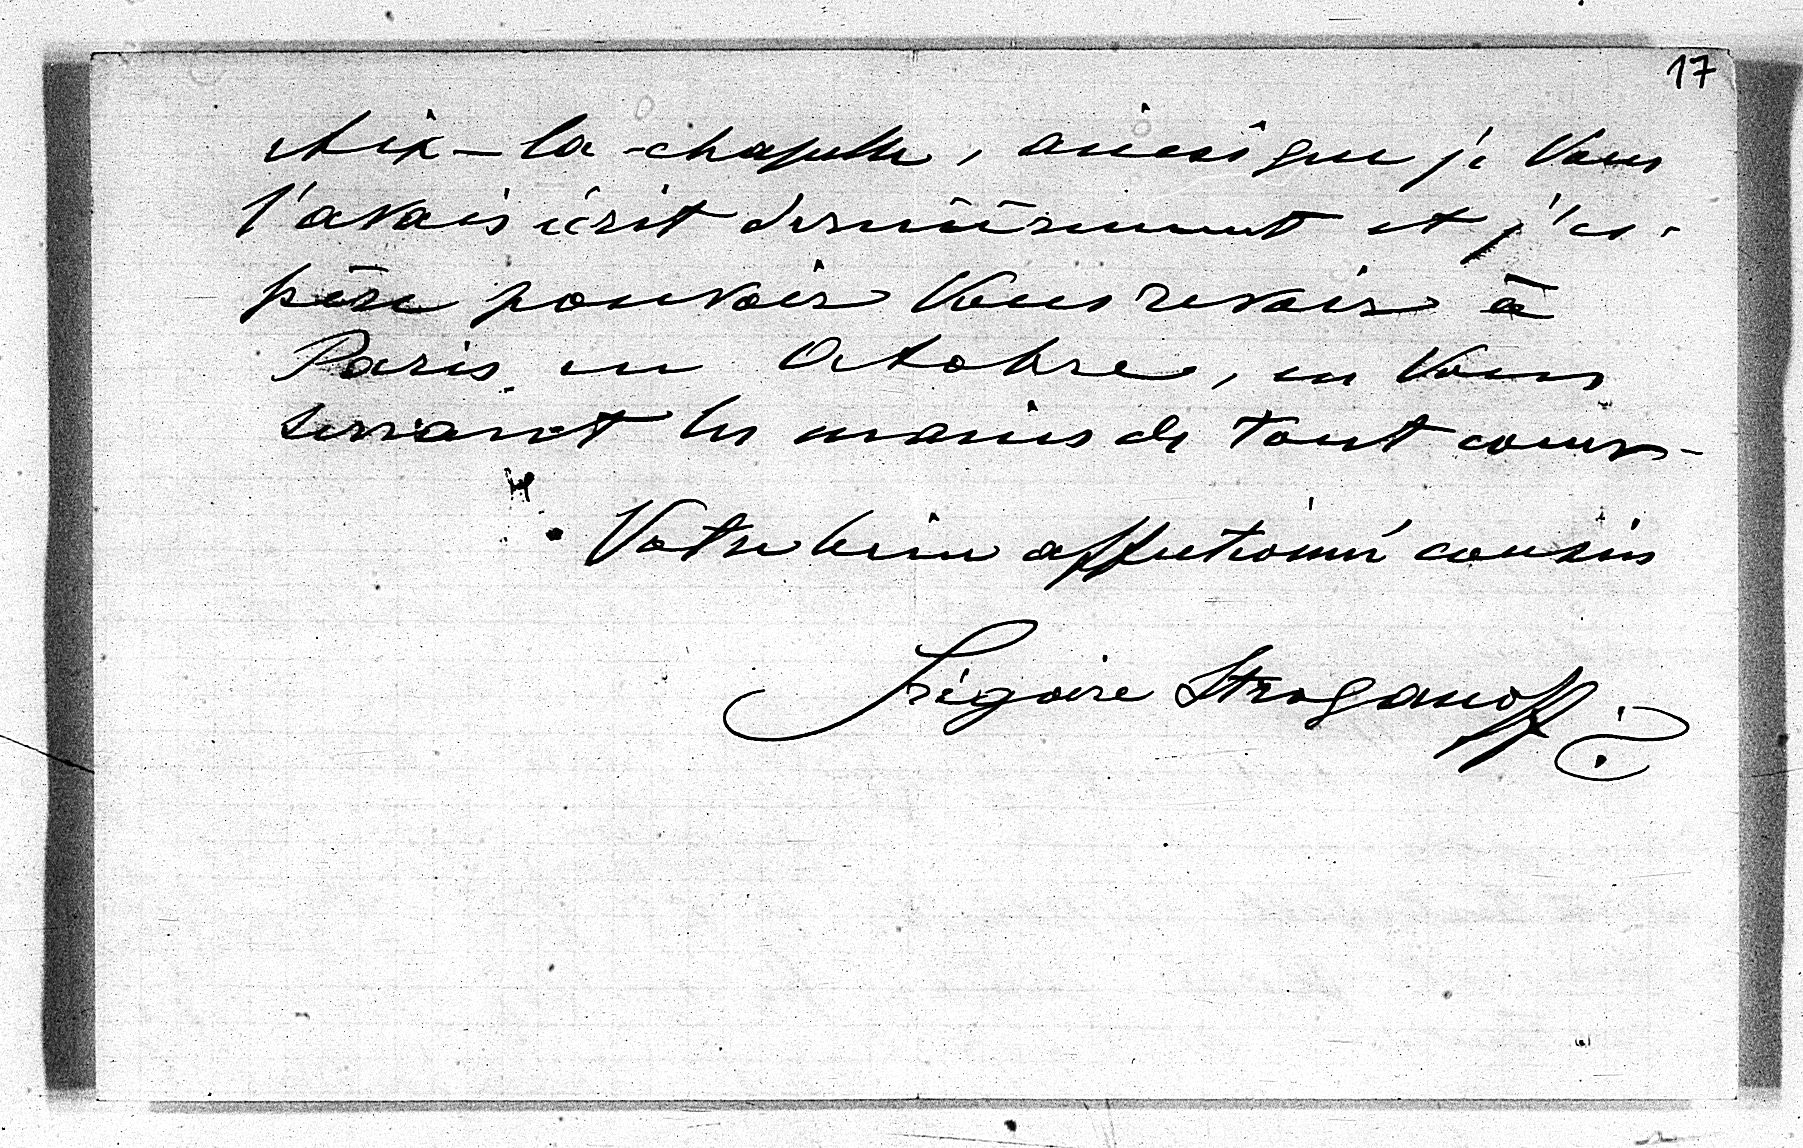 17
Aix-la-chapelle, ainsi que je Vous
l'avais écrit dernièrement et j'es-
père pouvoir Vous revoir à
Paris en Octobre, en Vous
serrant les mains de tout coeur -
Votre bien affectionné cousin
Grégoire Stroganoff